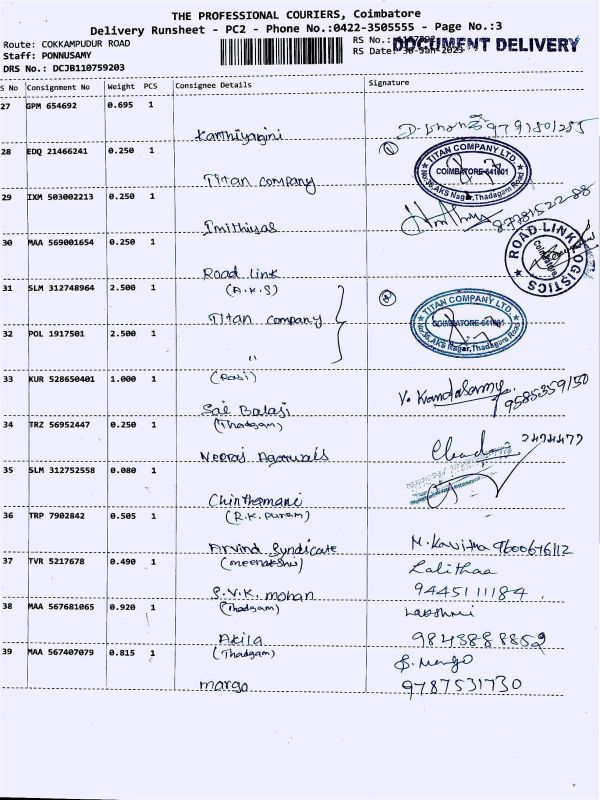 THE PROFESSIONAL COURIERS, Coimbatore
Delivery Runsheet - PC2 - Phone No.:0422-3505555 - Page No.:3
Route: COKKAMPUDUR ROAD
RS No.:
DOCUMENT DELIVERY
Staff: PONNUSAMY
RS Date: 30-Jan-2023
DRS No.: DCJB110759203
S No Consignment No Weight PCS Consignee Details Signature
27 GPM 654692 0.695 1
Karthiyayini
28 EDQ 21466241 0.250 1
Titan company
TITAN COMPANY LTD.
COIMBATORE-641001
No:36,AKS Nagar,Thadagam Road
29 IXM 503002213 0.250 1
Imithiyas
30 MAA 569001654 0.250 1
Road link
ROAD LINK LOGISTICS
Coimbatore
31 SLM 312748964 2.500 1
(A.K.S)
Titan company
TITAN COMPANY LTD.
COIMBATORE-641001
No:36,AKS Nagar,Thadagam Road
32 POL 1917501 2.500 1
"
33 KUR 528650401 1.000 1
(Rasi)
Sai Balaji
V. Kandasamy
9585359150
34 TRZ 56952447 0.250 1
(Thadgam)
Neeraj Agarwals
2474477
35 SLM 312752558 0.080 1
Chinthamani
36 TRP 7902842 0.505 1
(R.K. Puram)
Arvind Syndicate
M. Kavitha 9600676112
37 TVR 5217678 0.490 1
(meenakshi)
Lalithaa
S.V.K. mohan
9445111184
38 MAA 567681065 0.920 1
(Thadgam)
Lakshmi
Akila
9843888852
39 MAA 567407079 0.815 1
(Thadgam)
S. Margo
margo
9787531730